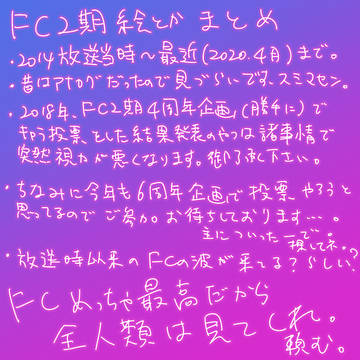 FC2期絵とか まとめ
・2014放送当時〜最近(2020.4月)まで。
・昔はアナログだったので見づらいです、スミマセン。
・2018年、FC2期4周年企画、(勝手に)で
キャラ投票とした結果発表のやつは諸事情で
突然視力が悪くなります。御了承下さい。
・ちなみに今年も6周年企画で投票やろうと
思ってるので ご参加お待ちしております…。
主についったーで。
探してネ。
・放送時以来のFCの波が来てる?らしい。?
FCめっちゃ最高だから
全人類は見てくれ。
頼む。